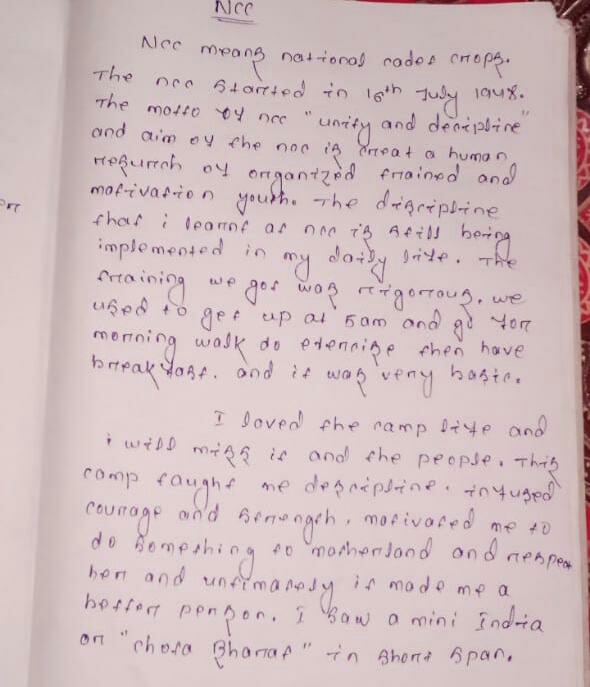 NCC
Ncc means national cadet crops.
The ncc started in 16th July 1948.
The motto of ncc "unity and decipline"
and aim of the ncc is creat a human
resurch of organized trained and
motivation youth. The discipline
that i learnt at ncc is still being
implemented in my daily life. The
training we got was rigorous. we
used to get up at 5am and go for
morning walk do exercise then have
breakfast. and it was very basic.
I loved the camp life and
i will miss it and the people. This
camp taught me descipline. infused
courage and strength. motivated me to
do something to motherland and respect
her and untimately it made me a
better person. I saw a mini India
or "chota Bharat" in short span.